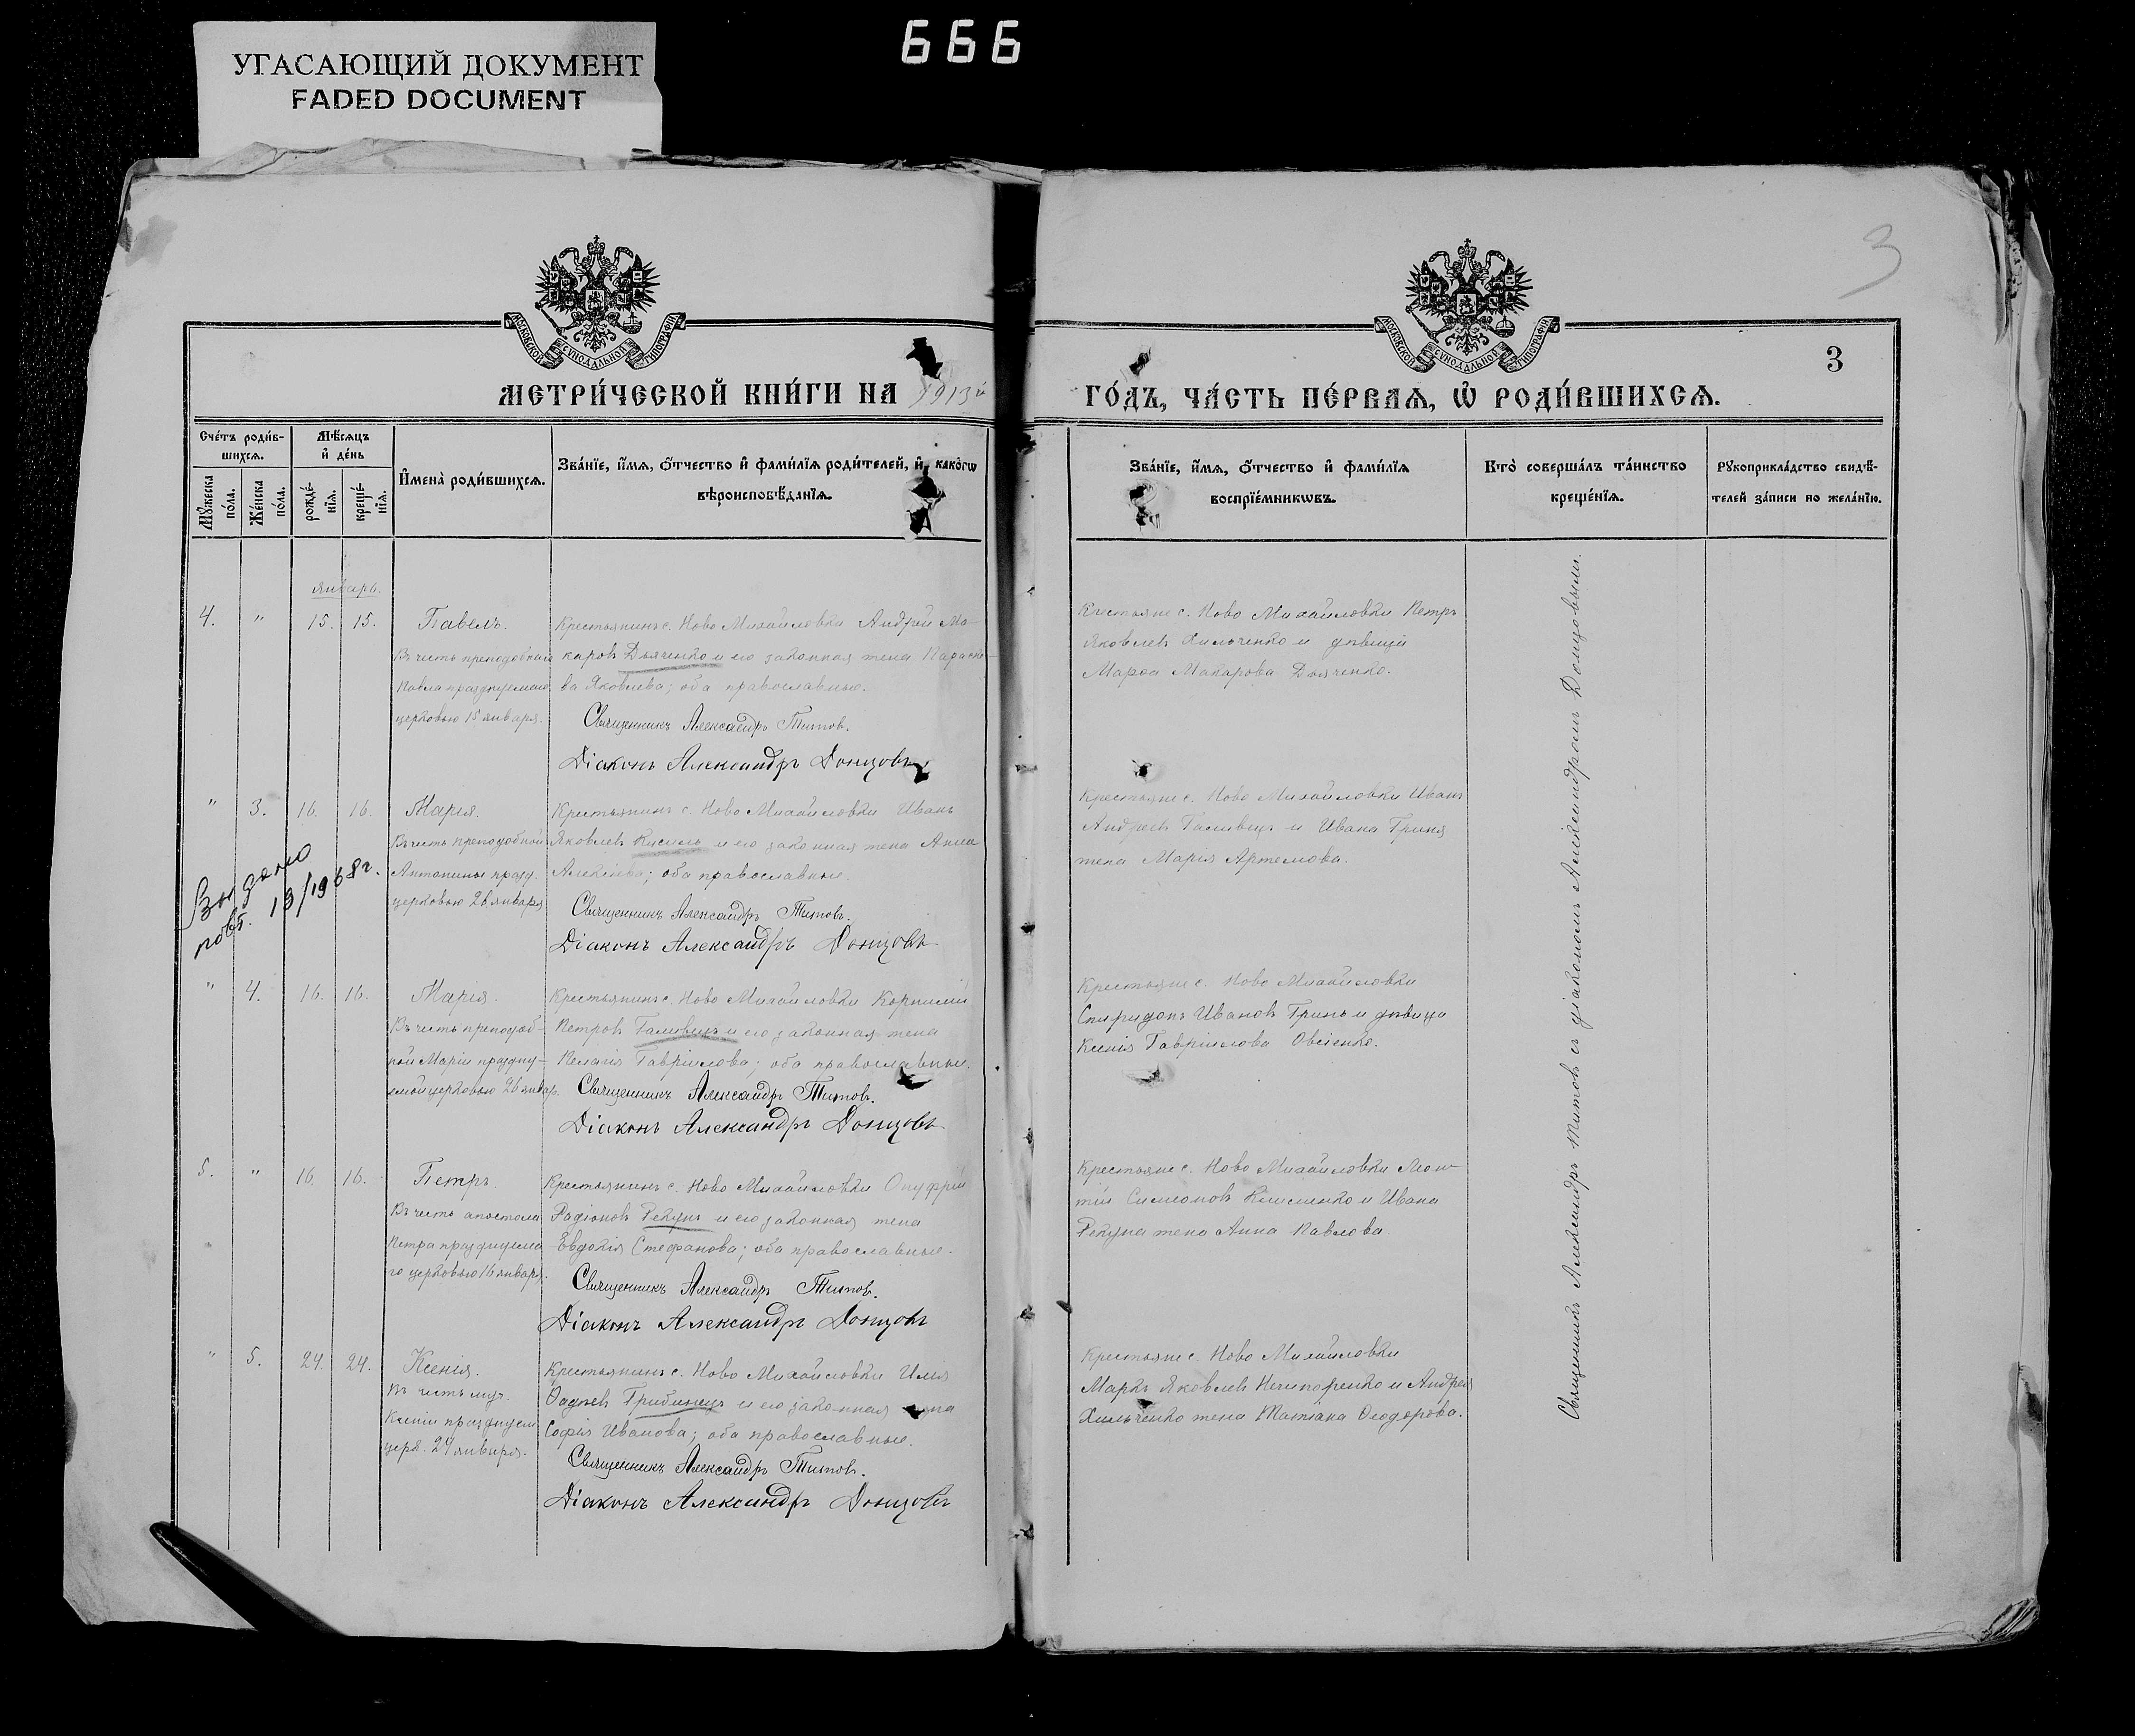 УГАСАЮЩИЙ ДОКУМЕНТ
FADED DOCUMENT
666
3
МОСКОВСКОЙ СѴНОДАЛЬНОЙ ТИПОГРАФІИ
МОСКОВСКОЙ СѴНОДАЛЬНОЙ ТИПОГРАФІИ
3
МЕТРИ́ЧЕСКОЙ КНИ́ГИ НА 1913й
ГО́ДЪ, ЧА́СТЬ ПЕ́РВАѦ, Ѡ҆ РОДИ́ВШИХСѦ.
Сче́тъ роди́в-
шихсѧ.
Мꙋ́жеска
по́ла.
Же́нска
по́ла.
Мѣ́сѧцъ
и҆ де́нь
рожде́-
нїѧ.
креще́-
нїѧ.
И҆мена̀ роди́вшихсѧ.
Зва́нїе, и҆́мѧ, ѻ҆́тчество и҆ фами́лїѧ роди́телей, и҆ како́гѡ
вѣроисповѣ́данїѧ.
Зва́нїе, и҆́мѧ, ѻ҆́тчество и҆ фами́лїѧ
воспрїе́мникѡвъ.
Кто̀ соверша́лъ та́инство
креще́нїѧ.
Рꙋкоприкла́дство свидѣ́-
телей за́писи по жела́нїю.
январь.
4. " 15. 15.
Павелъ.
Въ честь преподобнаго
Павла празднуемаго
церковью 15 января.
Крестьянинъ с. Ново Михайловки Андрей Ма-
каровъ Дьяченко и его законная жена Параске-
ва Яковлева; оба православные.
Священникъ Александръ Титовъ.
Діаконъ Александръ Донцовъ
Крестьяне с. Ново Михайловки Петръ
Яковлевъ Хильченко и дѣвица
Марѳа Макарова Дьяченко.
" 3. 16. 16.
Марія.
Въ честь преподобной
Антонины празд.
церковью 26 января
Крестьянинъ с. Ново Михайловки Иванъ
Яковлевъ Кисиль и его законная жена Анна
Алексѣева; оба православные.
Священникъ Александръ Титовъ.
Діаконъ Александръ Донцовъ
Крестьяне с. Ново Михайловки Иванъ
Андреевъ Галивецъ и Ивана Гриня
жена Марія Артемова.
Выдано
повт. 19/19 68 г.
" 4. 16. 16.
Марія.
Въ честь преподоб-
ной Маріи праздну-
емой церковью 26 январ.
Крестьянинъ с. Ново Михайловки Корнилій
Петровъ Галивецъ и его законная жена
Пелагія Гавріилова; оба православные.
Священникъ Александръ Титовъ.
Діаконъ Александръ Донцовъ
Крестьяне с. Ново Михайловки
Спиридонъ Ивановъ Гринь и дѣвица
Ксенія Гавріилова Овсіенко.
5. " 16. 16.
Петръ.
Въ честь апостола
Петра празднуема
го церковью 16 января.
Крестьянинъ с. Ново Михайловки Онуфрій
Радіоновъ Рекунъ и его законная жена
Евдокія Стефанова; оба православные.
Священникъ Александръ Титовъ.
Діаконъ Александръ Донцовъ
Крестьяне с. Ново Михайловки Леон-
тій Симеоновъ Клименко и Ивана
Рекуна жена Анна Павлова.
" 5. 24. 24.
Ксенія.
Въ честь муч.
Ксеніи празднуем.
церк. 24 января.
Крестьянинъ с. Ново Михайловки Илія
Ѳадѣевъ Грибинецъ и его законная жена
Софія Иванова; оба православные.
Священникъ Александръ Титовъ.
Діаконъ Александръ Донцовъ
Крестьяне с. Ново Михайловки
Маркъ Яковлевъ Нечипоренко и Андрея
Хильченко жена Татіана Ѳеодорова.
Священникъ Александръ Титовъ съ діакономъ Александромъ Донцовымъ.